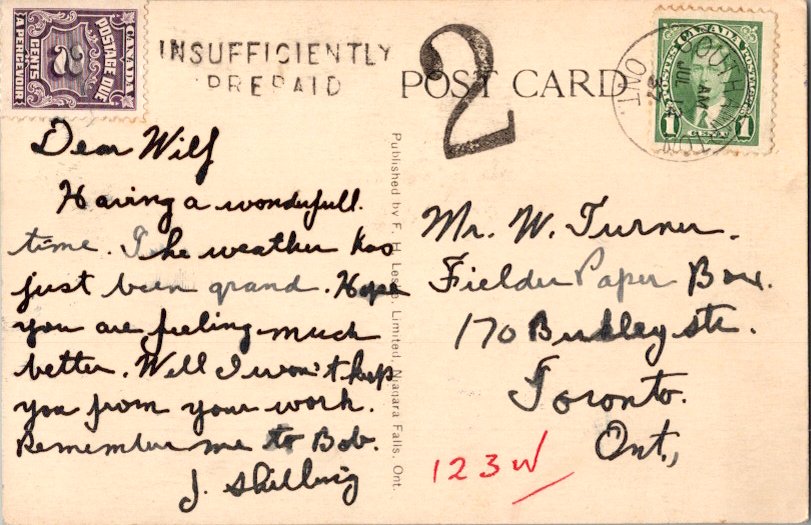 CANADA
POSTAGE DUE
2
CENTS
A PERCEVOIR
INSUFFICIENTLY
PREPAID
2
POST CARD
ONT.
AM
JUL
POSTES CANADA POSTAGE
1 CENT 1
Dear Wilf
Having a wonderfull
time. The weather has
just been grand. Hope
you are feeling much
better. Well I won't keep
you from your work.
Remember me to Bob.
J. Shilling
Published by F. H. Leslie, Limited, Niagara Falls, Ont.
Mr. W. Turner.
Fielder Paper Box.
170 str.
Toronto.
Ont.,
123W